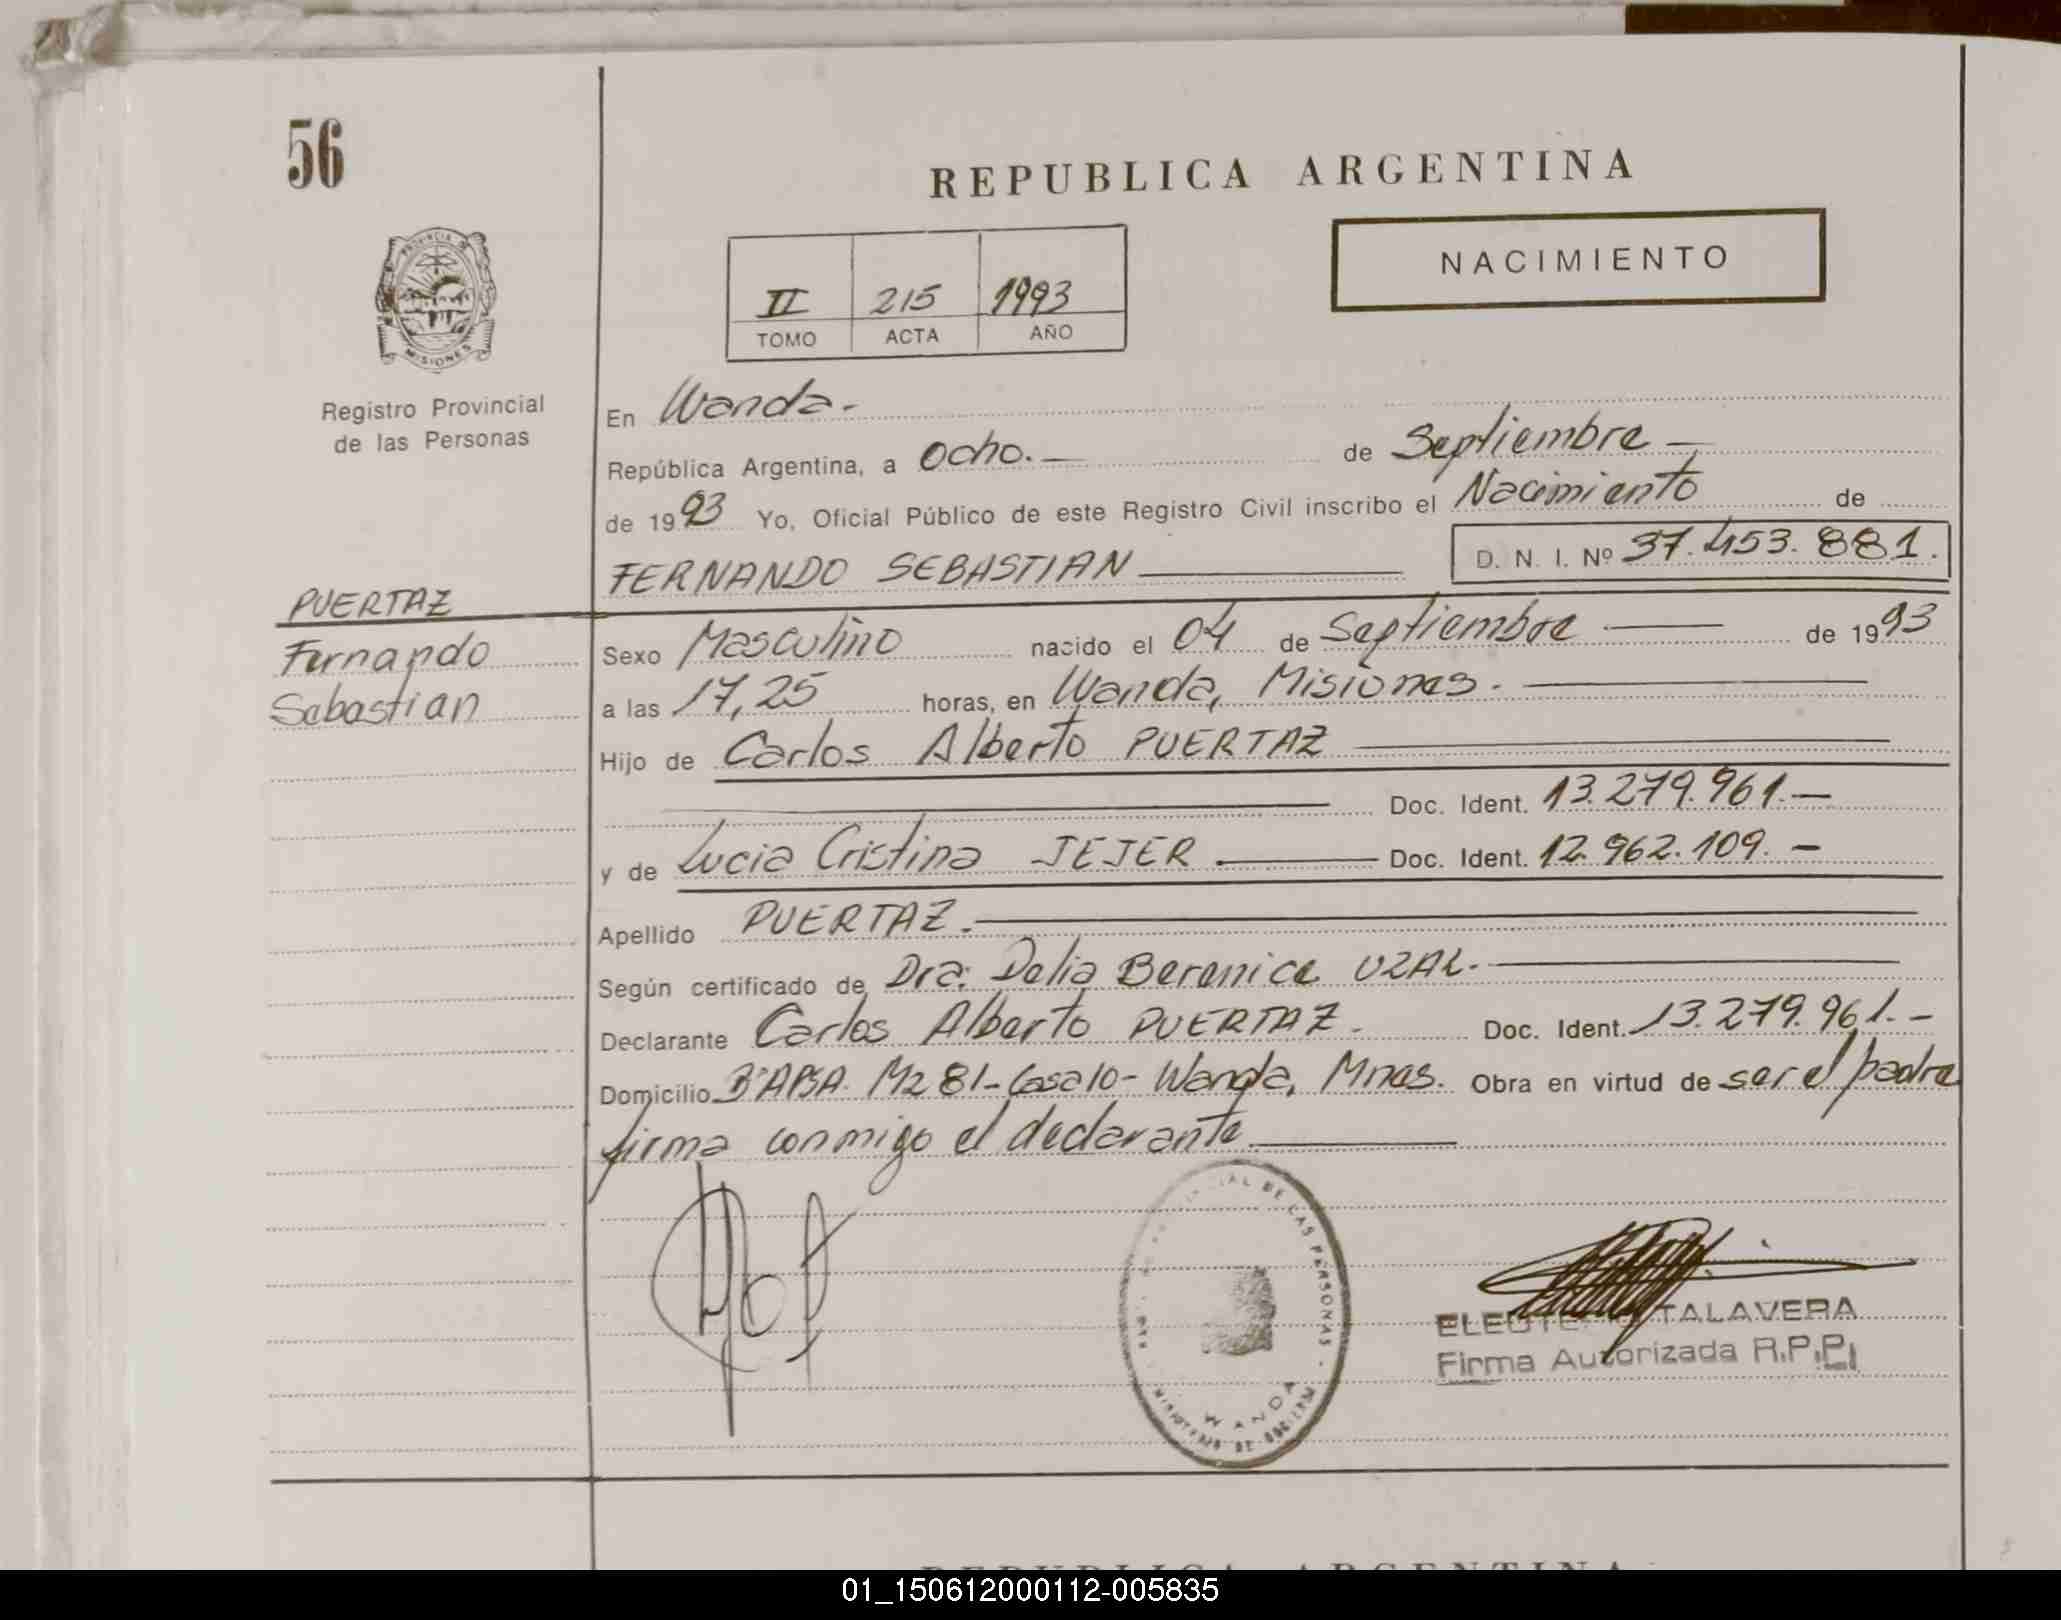 56
REPUBLICA ARGENTINA
NACIMIENTO
II 215 1993
TOMO ACTA AÑO
PROVINCIA DE
MISIONES
Registro Provincial
de las Personas
En Wanda.-
República Argentina, a Ocho.— de Septiembre —
de 1993 Yo, Oficial Público de este Registro Civil inscribo el Nacimiento de
FERNANDO SEBASTIAN — D. N. I. Nº 37.453.881.
PUERTAZ
Fernando
Sebastian
Sexo Masculino nacido el 04 de Septiembre — de 1993
a las 17,25 horas, en Wanda, Misiones.—
Hijo de Carlos Alberto PUERTAZ —
— Doc. Ident. 13.279.961.—
y de Lucia Cristina JEJER — Doc. Ident. 12.962.109.—
Apellido PUERTAZ.—
Según certificado de Dra: Delia Berenice UZAL.—
Declarante Carlos Alberto PUERTAZ. Doc. Ident. 13.279.961.-
Domicilio Bº APSA. Mz 81-Casa 10- Wanda, Mnes. Obra en virtud de ser el padre
firma conmigo el declarante.—
DE LAS PERSONAS
WANDA
MINISTERIO DE GOBIERNO
TALAVERA
Firma Autorizada R.P.P.
REPUBLICA ARGENTINA
01_150612000112-005835